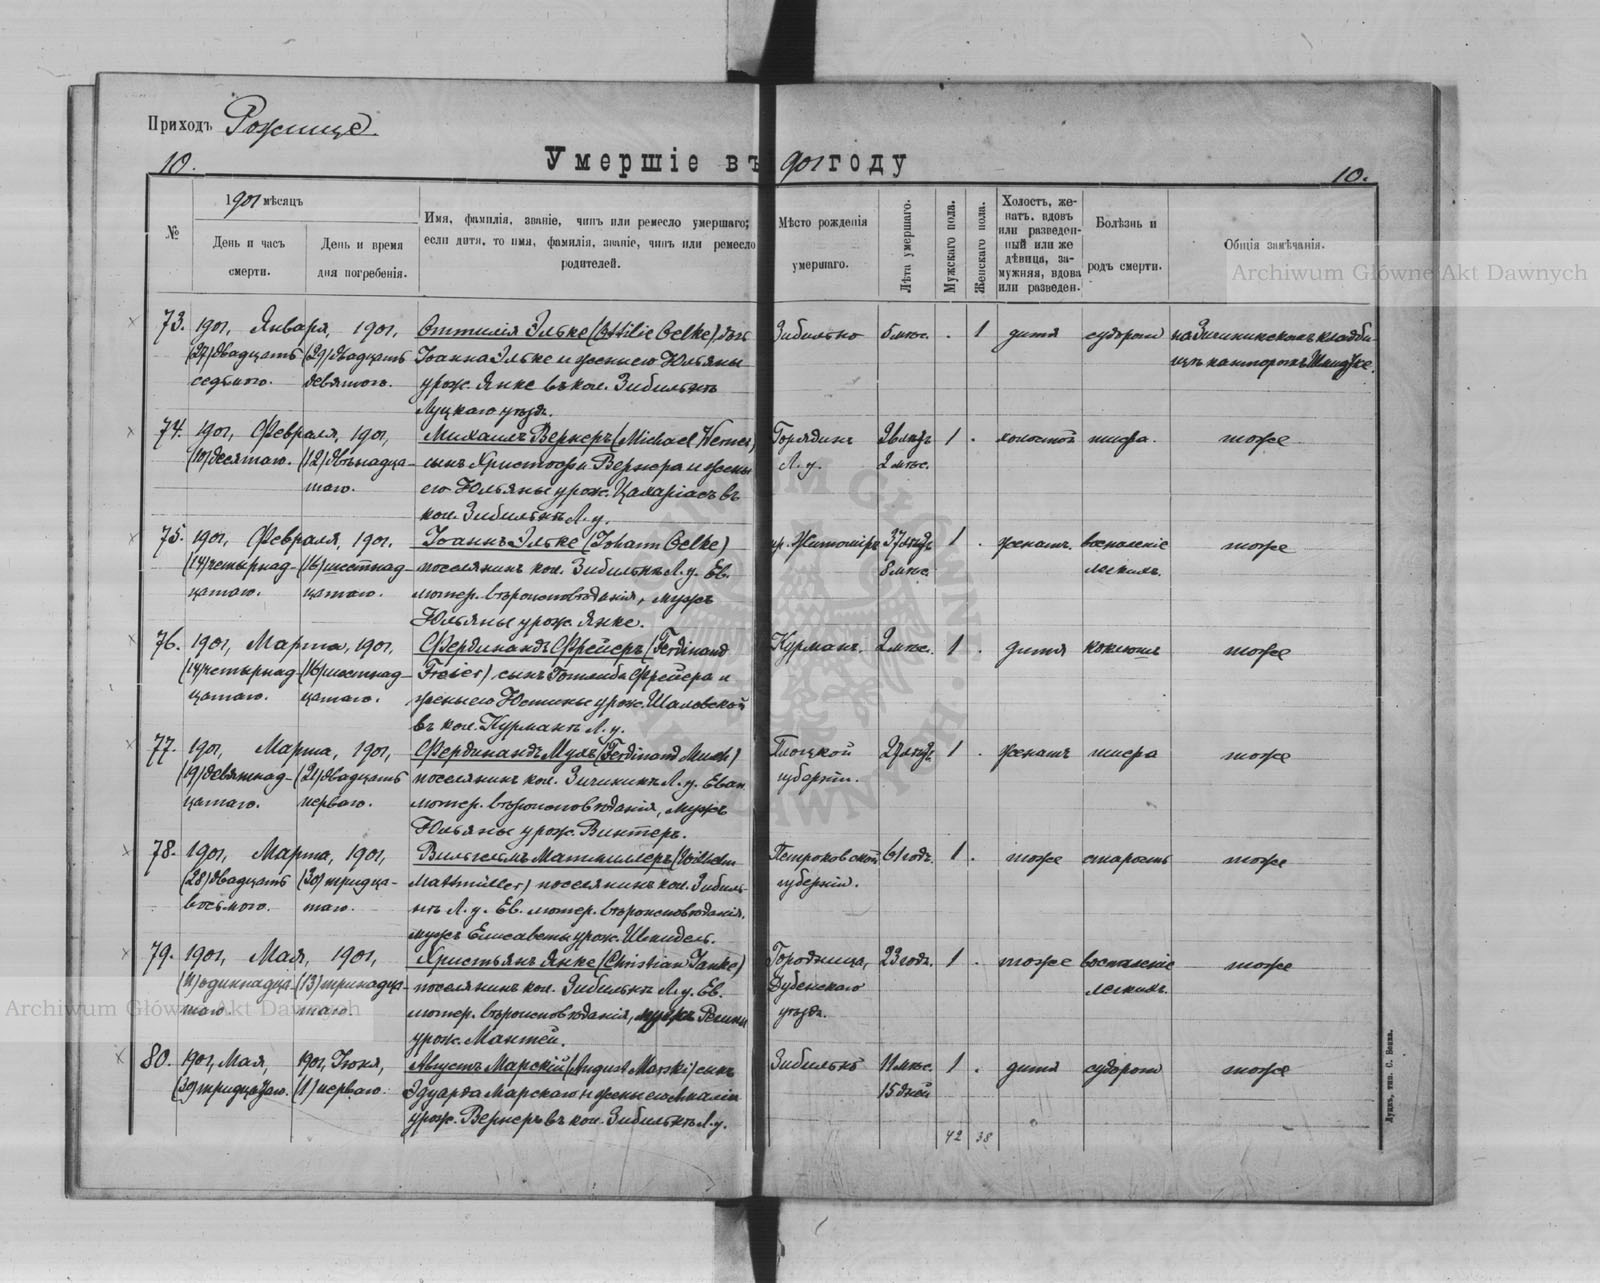 Приходъ Рожище.
10.
Умершіе въ 1901 году
10.
№
1901 мѣсяцъ
День и часъ смерти.
День и время дня погребенія.
Имя, фамилія, званіе, чинъ или ремесло умершаго;
если дитя, то имя, фамилія, званіе, чинъ или ремесло
родителей.
Мѣсто рожденія
умершаго.
Лѣта умершаго.
Мужскаго пола.
Женскаго пола.
Холостъ, же-
натъ, вдовъ
или разведен-
ный или же
дѣвица, за-
мужняя, вдова
или разведен.
Болѣзнь и
родъ смерти.
Общія замѣчанія.
Archiwum Główne Akt Dawnych
73. 1901, Января, 1901, Оттилія Эльке (Ottilie Oelke) дочь Зибильно 5 мѣс. . 1 дитя судороги
(27) двадцать (29) двадцать Іоанна Эльке и жены его Юльяны
седьмого. девятого. урож. Янке въ кол. Зибильнѣ
Луцкаго уѣзда.
74. 1901, Февраля, 1901, Михаилъ Вернеръ (Michael Werner) 26 лѣтъ 1 . холостой тоже
(10) десятаго. (12) двѣнадца- сынъ Христофа Вернера и жены Л. у. 2 мѣс.
таго. его Юльяны урож. Цахаріасъ въ
кол. Зибильнѣ Л. у.
75. 1901, Февраля, 1901, Іоаннъ Эльке (Johann Oelke) Житоміръ 37 лѣтъ 1 . женатъ. воспаленіе тоже
(14) четырнад- (16) шестнад- поселянинъ кол. Зибильнѣ Л. у. Ев. 8 мѣс. легкихъ.
цатаго. цатаго. лютер. вѣроисповѣданія, мужъ
Юльяны урож. Янке.
76. 1901, Марта, 1901, Фердинандъ Фрейеръ (Ferdinand Курманъ. 2 мѣс. 1 . дитя коклюшъ тоже
(14) четырнад- (16) шестнад- Freier), сынъ Готлиба Фрейера и
цатаго. цатаго. жены его Юстины урож. Шаловской
въ кол. Курманъ Л. у.
77. 1901, Марта, 1901, Фердинандъ Мухъ (Ferdinand Much) Плоцкой 27 лѣтъ 1 . женатъ тоже
(19) девятнад- (21) двадцать поселянинъ кол. Л. у. Еван. губерніи.
цатаго. перваго. лютер. вѣроисповѣданія, мужъ
Юльяны урож. Винтеръ.
78. 1901, Марта, 1901, Вильгельмъ Матмиллеръ (Wilhelm Петроковской 61 годъ. 1 . тоже старость тоже
(28) двадцать (30) тридца- Mattmüller) поселянинъ кол. Зибиль- губерніи.
восьмого. таго. нѣ Л. у. Ев. лютер. вѣроисповѣданія,
мужъ Елисаветы урож. Шпидель.
79. 1901, Мая, 1901, Христьянъ Янке (Christian Janke) Городница, 23 года. 1 . тоже воспаленіе тоже
(11) одиннадца- (13) тринадца- поселянинъ кол. Зибильнѣ Л. у. Ев. Дубенскаго легкихъ.
таго. таго. лютер. вѣроисповѣданія, мужъ уѣзда.
урож. Мантей.
80. 1901, Мая, 1901, Іюня, Августъ Марскій (August Marski) сынъ Зибильнѣ 11 мѣс. 1 . дитя судороги тоже
(30) тридцатаго. (1) перваго. Эдуарда Марскаго и жены его Амаліи 15 дней
урож. Вернеръ въ кол. Зибильнѣ Л. у.
42 38
Archiwum Główne Akt Dawnych